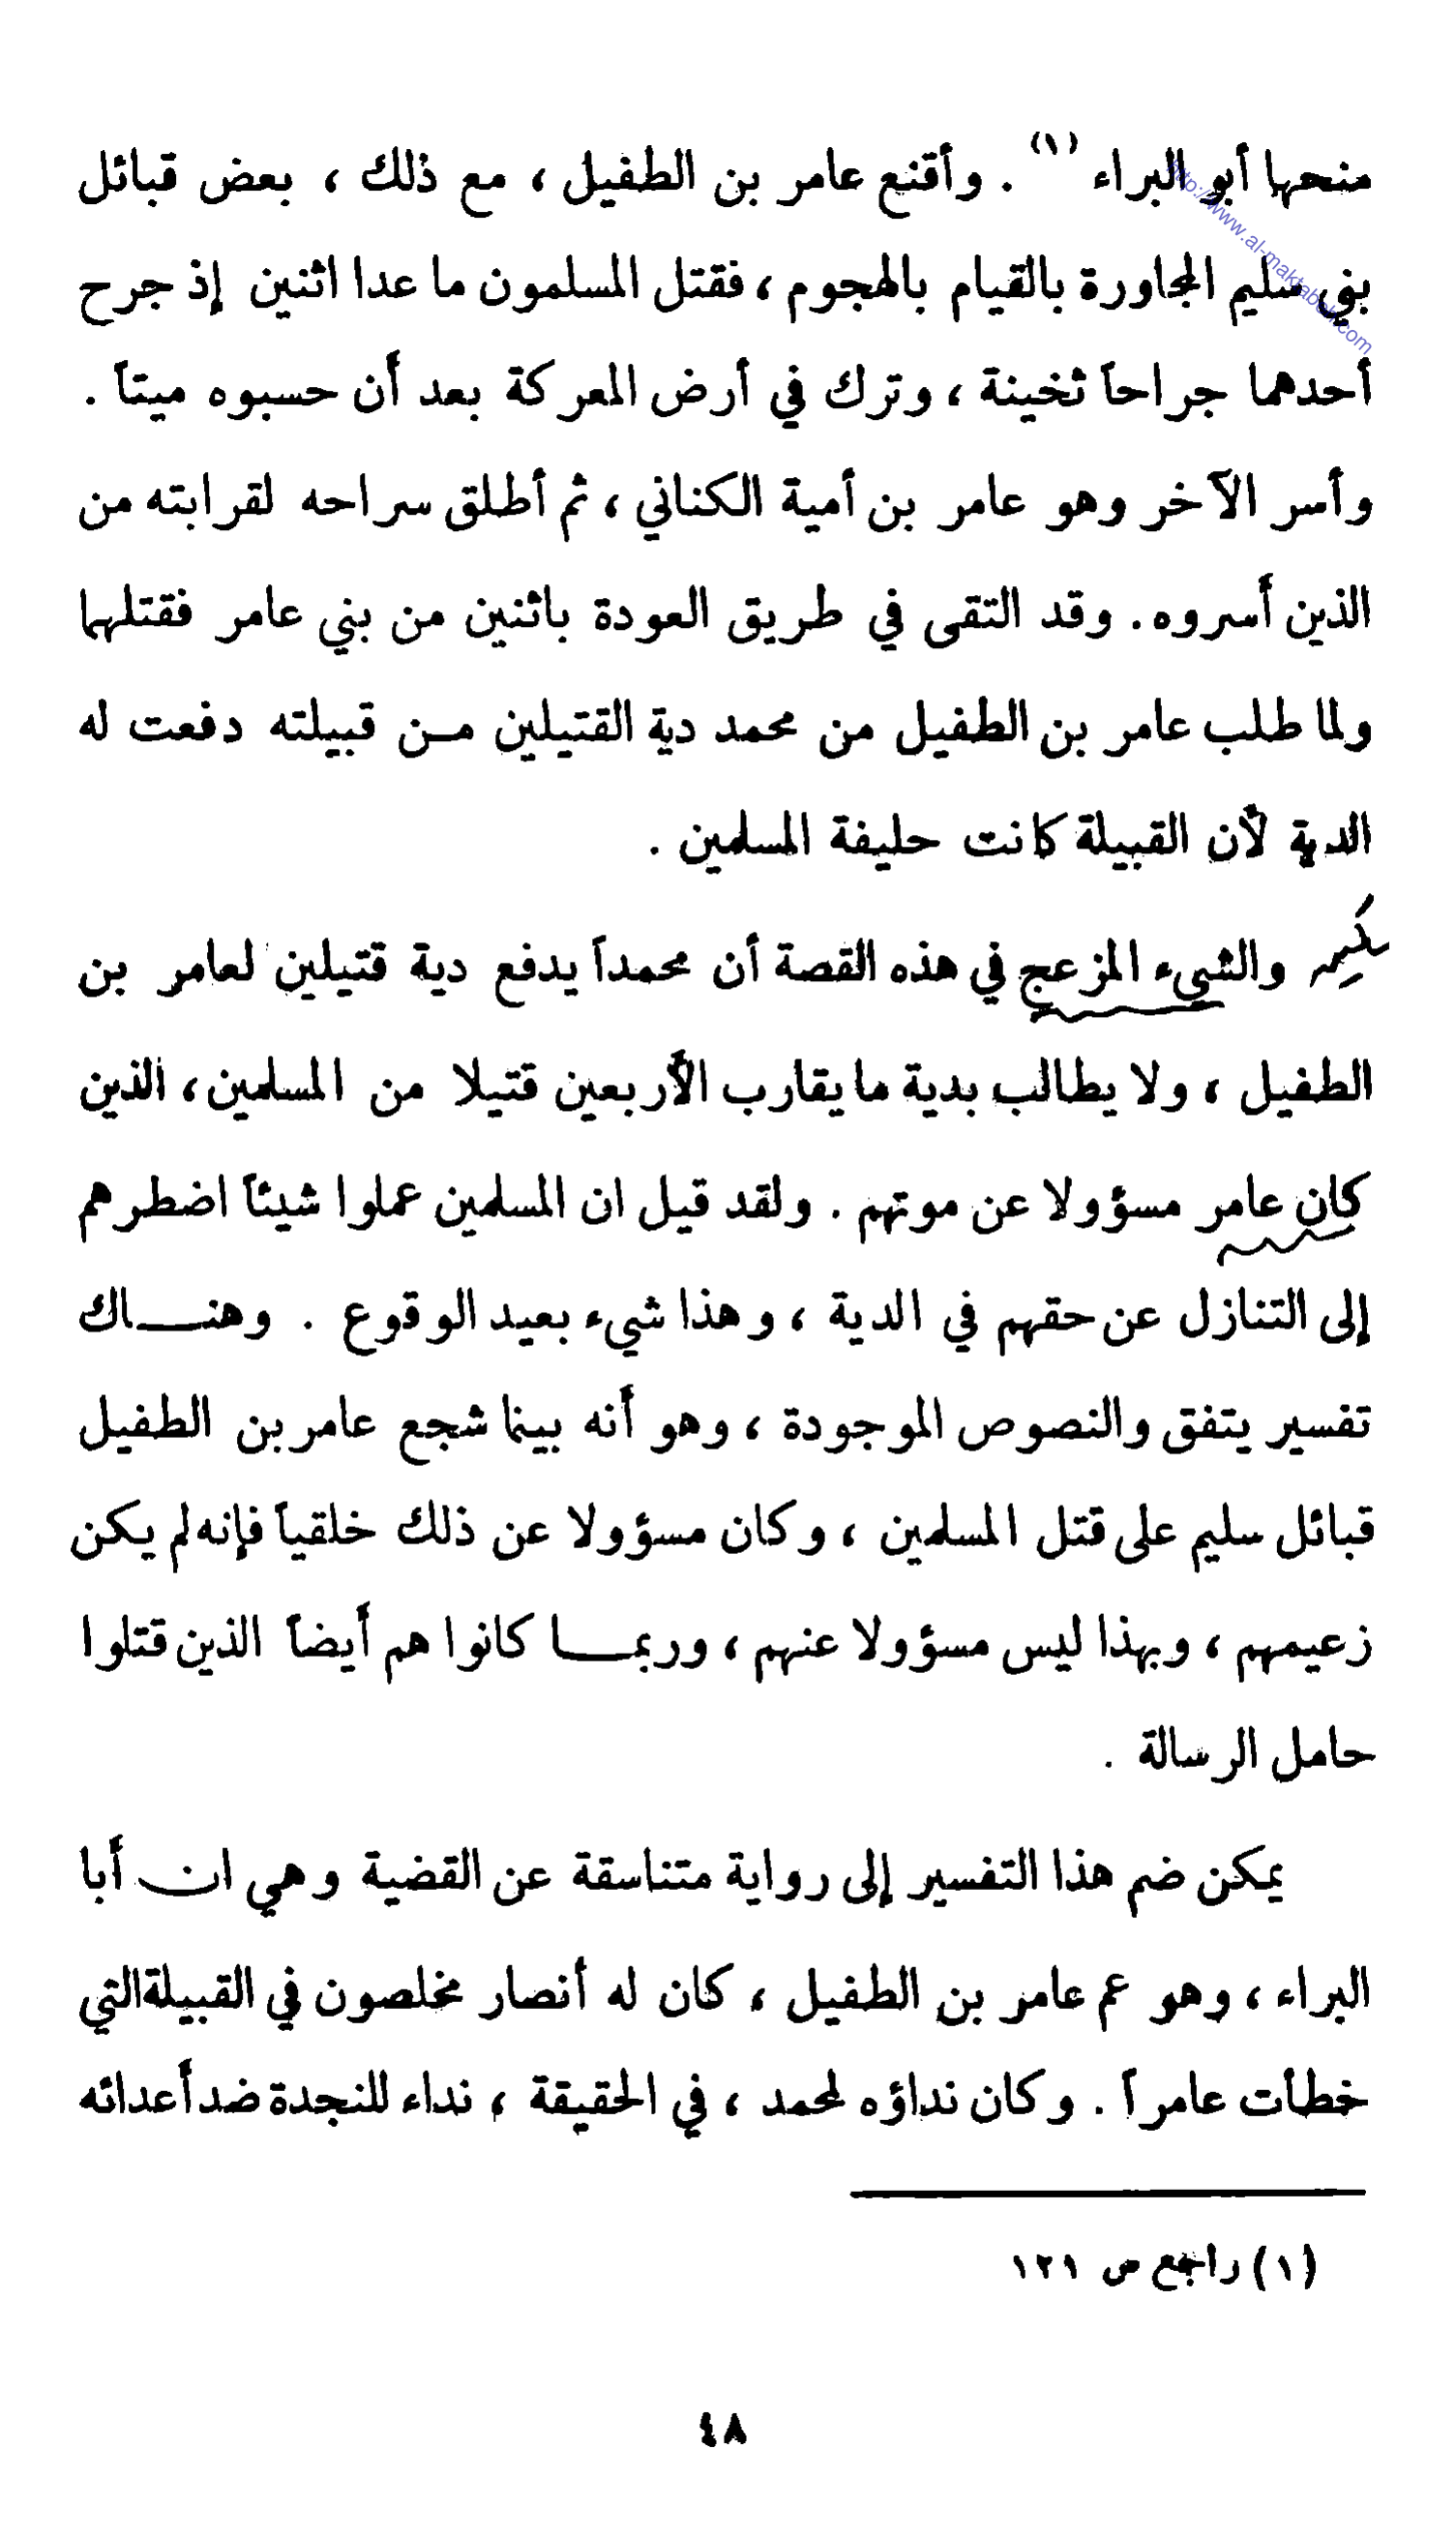 منحها أبو البراء (١) . وأقنع عامر بن الطفيل ، مع ذلك ، بعض قبائل
بني سليم المجاورة بالقيام بالهجوم ، فقتل المسلمون ما عدا اثنين إذ جرح
أحدهما جراحاً ثخينة ، وترك في أرض المعركة بعد أن حسبوه ميتاً .
وأسر الآخر وهو عامر بن أمية الكناني ، ثم أطلق سراحه لقرابته من
الذين أسروه . وقد التقى في طريق العودة باثنين من بني عامر فقتلهما
ولما طلب عامر بن الطفيل من محمد دية القتيلين مـن قبيلته دفعت له
الدية لأن القبيلة كانت حليفة المسلمين .
والشيء المزعج في هذه القصة أن محمداً يدفع دية قتيلين لعامر بن
الطفيل ، ولا يطالب بدية ما يقارب الأربعين قتيلا من المسلمين ، الذين
كان عامر مسؤولا عن موتهم . ولقد قيل ان المسلمين عملوا شيئاً اضطرهم
إلى التنازل عن حقهم في الدية ، وهذا شيء بعيد الوقوع . وهنـــاك
تفسير يتفق والنصوص الموجودة ، وهو أنه بينما شجع عامر بن الطفيل
قبائل سليم على قتل المسلمين ، وكان مسؤولا عن ذلك خلقياً فإنه لم يكن
زعيمهم ، وبهذا ليس مسؤولا عنهم ، وربمـــا كانوا هم أيضاً الذين قتلوا
حامل الرسالة .
يمكن ضم هذا التفسير إلى رواية متناسقة عن القضية وهي ان أبا
البراء ، وهو عم عامر بن الطفيل ، كان له أنصار مخلصون في القبيلة التي
خطأت عامراً . وكان نداؤه لمحمد ، في الحقيقة ، نداء للنجدة ضد أعدائه
(١) راجع ص ١٢١
٤٨
http://www.al-maktabeh.com